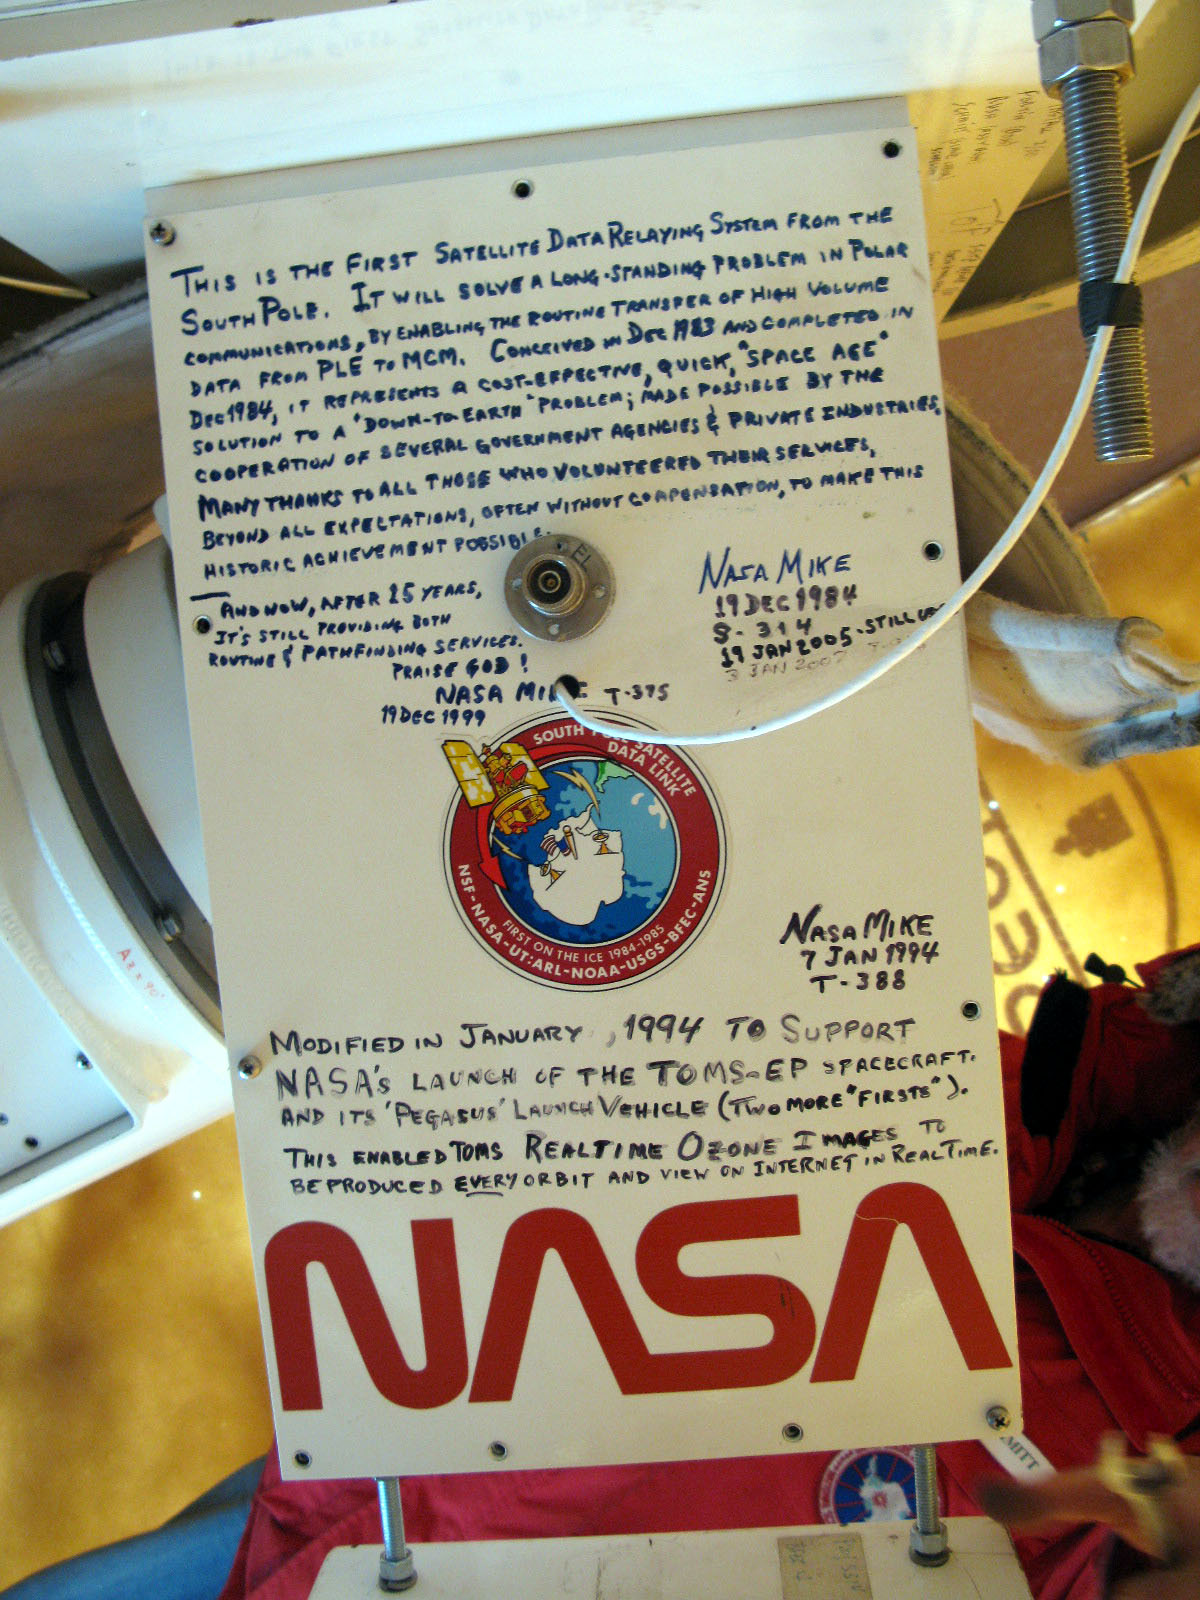 THIS IS THE FIRST SATELLITE DATA RELAYING SYSTEM FROM THE
SOUTH POLE. IT WILL SOLVE A LONG-STANDING PROBLEM IN POLAR
COMMUNICATIONS, BY ENABLING THE ROUTINE TRANSFER OF HIGH VOLUME
DATA FROM PLE TO MCM. CONCEIVED IN DEC 1983 AND COMPLETED IN
DEC 1984, IT REPRESENTS A COST-EFFECTIVE, QUICK, "SPACE AGE"
SOLUTION TO A "DOWN-TO-EARTH" PROBLEM; MADE POSSIBLE BY THE
COOPERATION OF SEVERAL GOVERNMENT AGENCIES & PRIVATE INDUSTRIES.
MANY THANKS TO ALL THOSE WHO VOLUNTEERED THEIR SERVICES,
BEYOND ALL EXPECTATIONS, OFTEN WITHOUT COMPENSATION, TO MAKE THIS
HISTORIC ACHIEVEMENT POSSIBLE.
EL
NASA MIKE
19 DEC 1984
S-314
19 JAN 2005-STILL
3 JAN 2007
AND NOW, AFTER 15 YEARS,
IT'S STILL PROVIDING BOTH
ROUTINE & PATHFINDING SERVICES.
PRAISE GOD!
NASA MIKE T-375
19 DEC 1999
SOUTH POLE SATELLITE
DATA LINK
FIRST ON THE ICE 1984-1985
NSF-NASA-UT:ARL-NOAA-USGS-BFEC-ANS
NASA MIKE
7 JAN 1994
T-388
MODIFIED IN JANUARY, 1994 TO SUPPORT
NASA'S LAUNCH OF THE TOMS-EP SPACECRAFT.
AND ITS 'PEGASUS' LAUNCH VEHICLE (TWO MORE "FIRSTS").
THIS ENABLED TOMS REALTIME OZONE IMAGES TO
BE PRODUCED EVERY ORBIT AND VIEW ON INTERNET IN REALTIME.
NASA
AZ = 90°
MITT